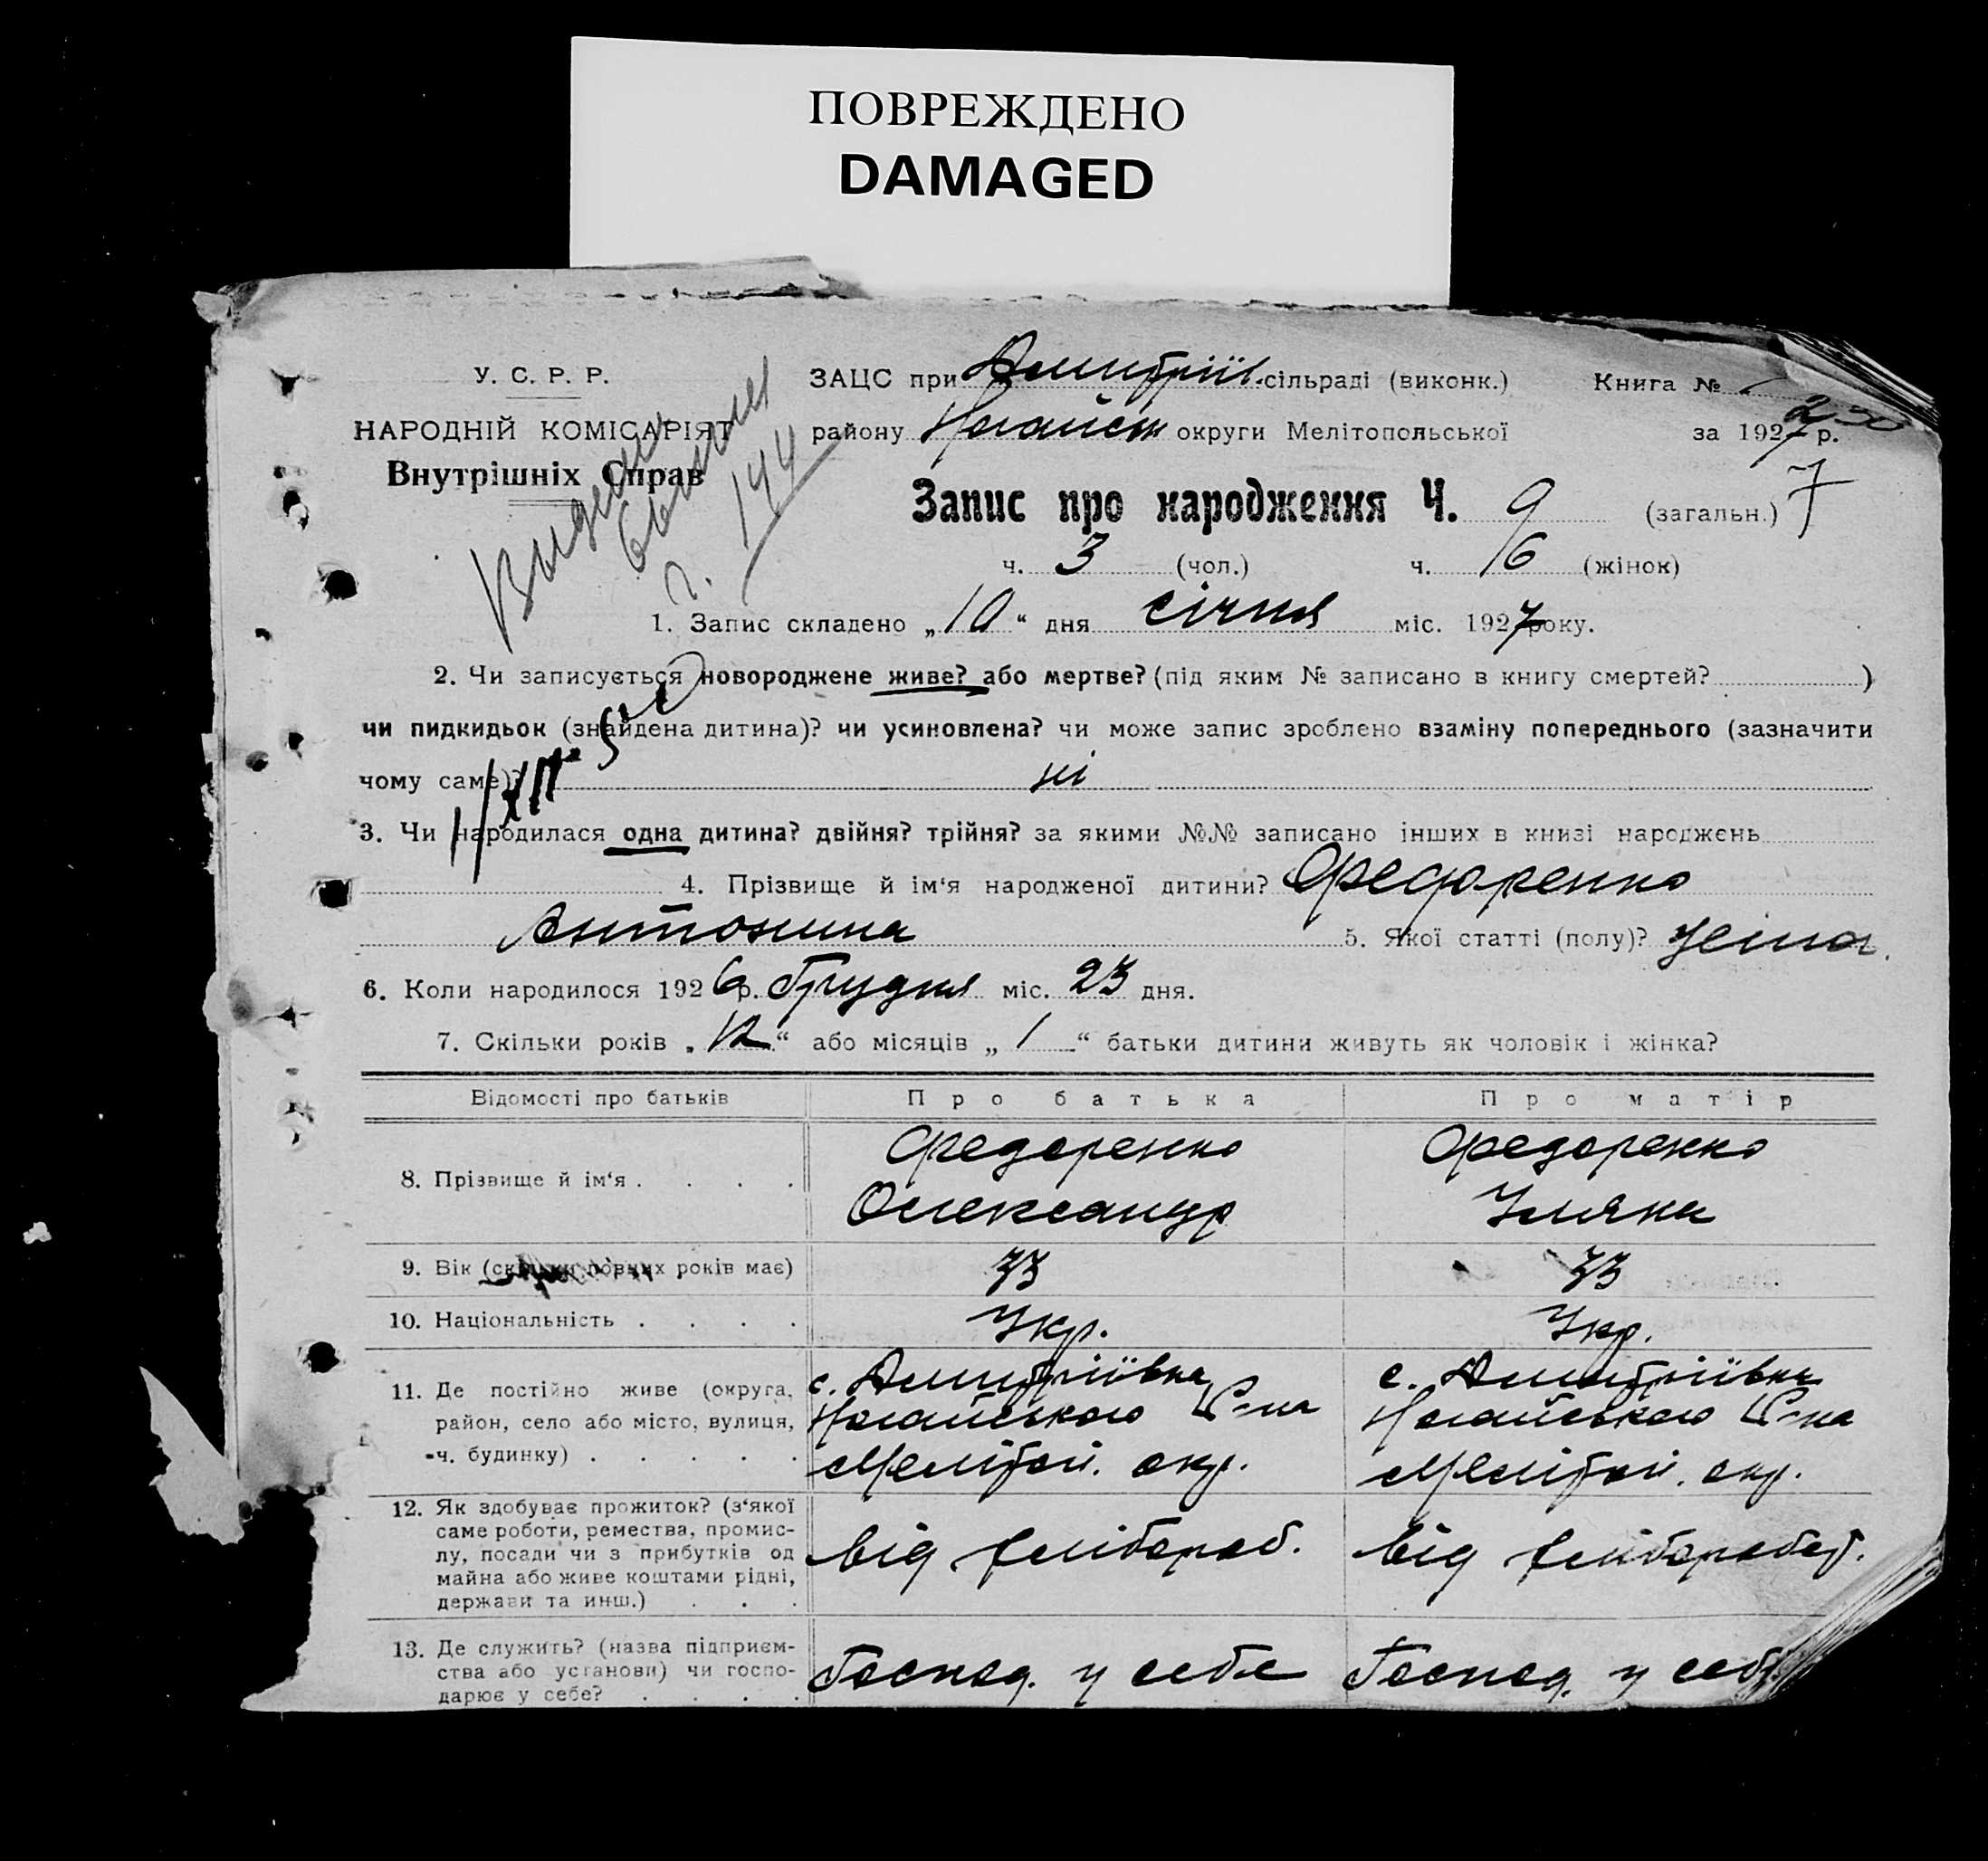 ПОВРЕЖДЕНО
DAMAGED
У. С. Р. Р.
НАРОДНІЙ КОМІСАРІЯТ
Внутрішніх Справ
ЗАЦС при Дмитріїв. сільраді (виконк.) Книга №
району Ногайськ округи Мелітопольської за 1927 р.
Запис про народження Ч. 9 (загальн.) 7
ч. 3 (чол.) ч. 6 (жінок)
1. Запис складено „10“ дня січня міс. 1927 року.
2. Чи записується новороджене живе? або мертве? (під яким № записано в книгу смертей? )
чи пидкидьок (знайдена дитина)? чи усиновлена? чи може запис зроблено взаміну попереднього (зазначити
чому саме)? ні
3. Чи народилася одна дитина? двійня? трійня? за якими №№ записано інших в книзі народжень
4. Прізвище й ім‘я народженої дитини? Федоренко
Антонина 5. Якої статті (полу)? жіноч.
6. Коли народилося 1926 р. Грудня міс. 23 дня.
7. Скільки років „12“ або місяців „1“ батьки дитини живуть як чоловік і жінка?
Відомості про батьків Про батька Про матір
8. Прізвище й ім‘я . . . . Федоренко Олександр Федоренко Уляна
9. Вік (скільки повних років має) 33 33
10. Національність . . . . Укр. Укр.
11. Де постійно живе (округа, с. Дмитріївка с. Дмитріївка
район, село або місто, вулиця, Ногайського Р-на Ногайського Р-на
ч. будинку) . . . . . Мелітоп. окр. Мелітоп. окр.
12. Як здобуває прожиток? (з‘якої
саме роботи, ремества, промис-
лу, посади чи з прибутків од від хлібороб. від хлібороб.
майна або живе коштами рідні,
держави та инш.) . . .
13. Де служить? (назва підприєм-
ства або установи) чи госпо- Господ. у себе Господ. у себе
дарює у себе? . . . .